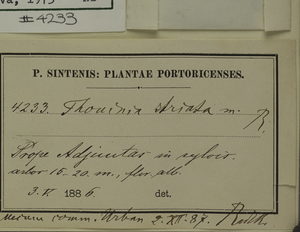 #4233
P. SINTENIS: PLANTAE PORTORICENSES.
4233. Thouinia striata m. R.
Prope Adjuntas in sylvis.
arbor 15-20 m., flor. alb.
3. VI 1886. det.
necum comm. Urban 2. XII. 87. Radlk.